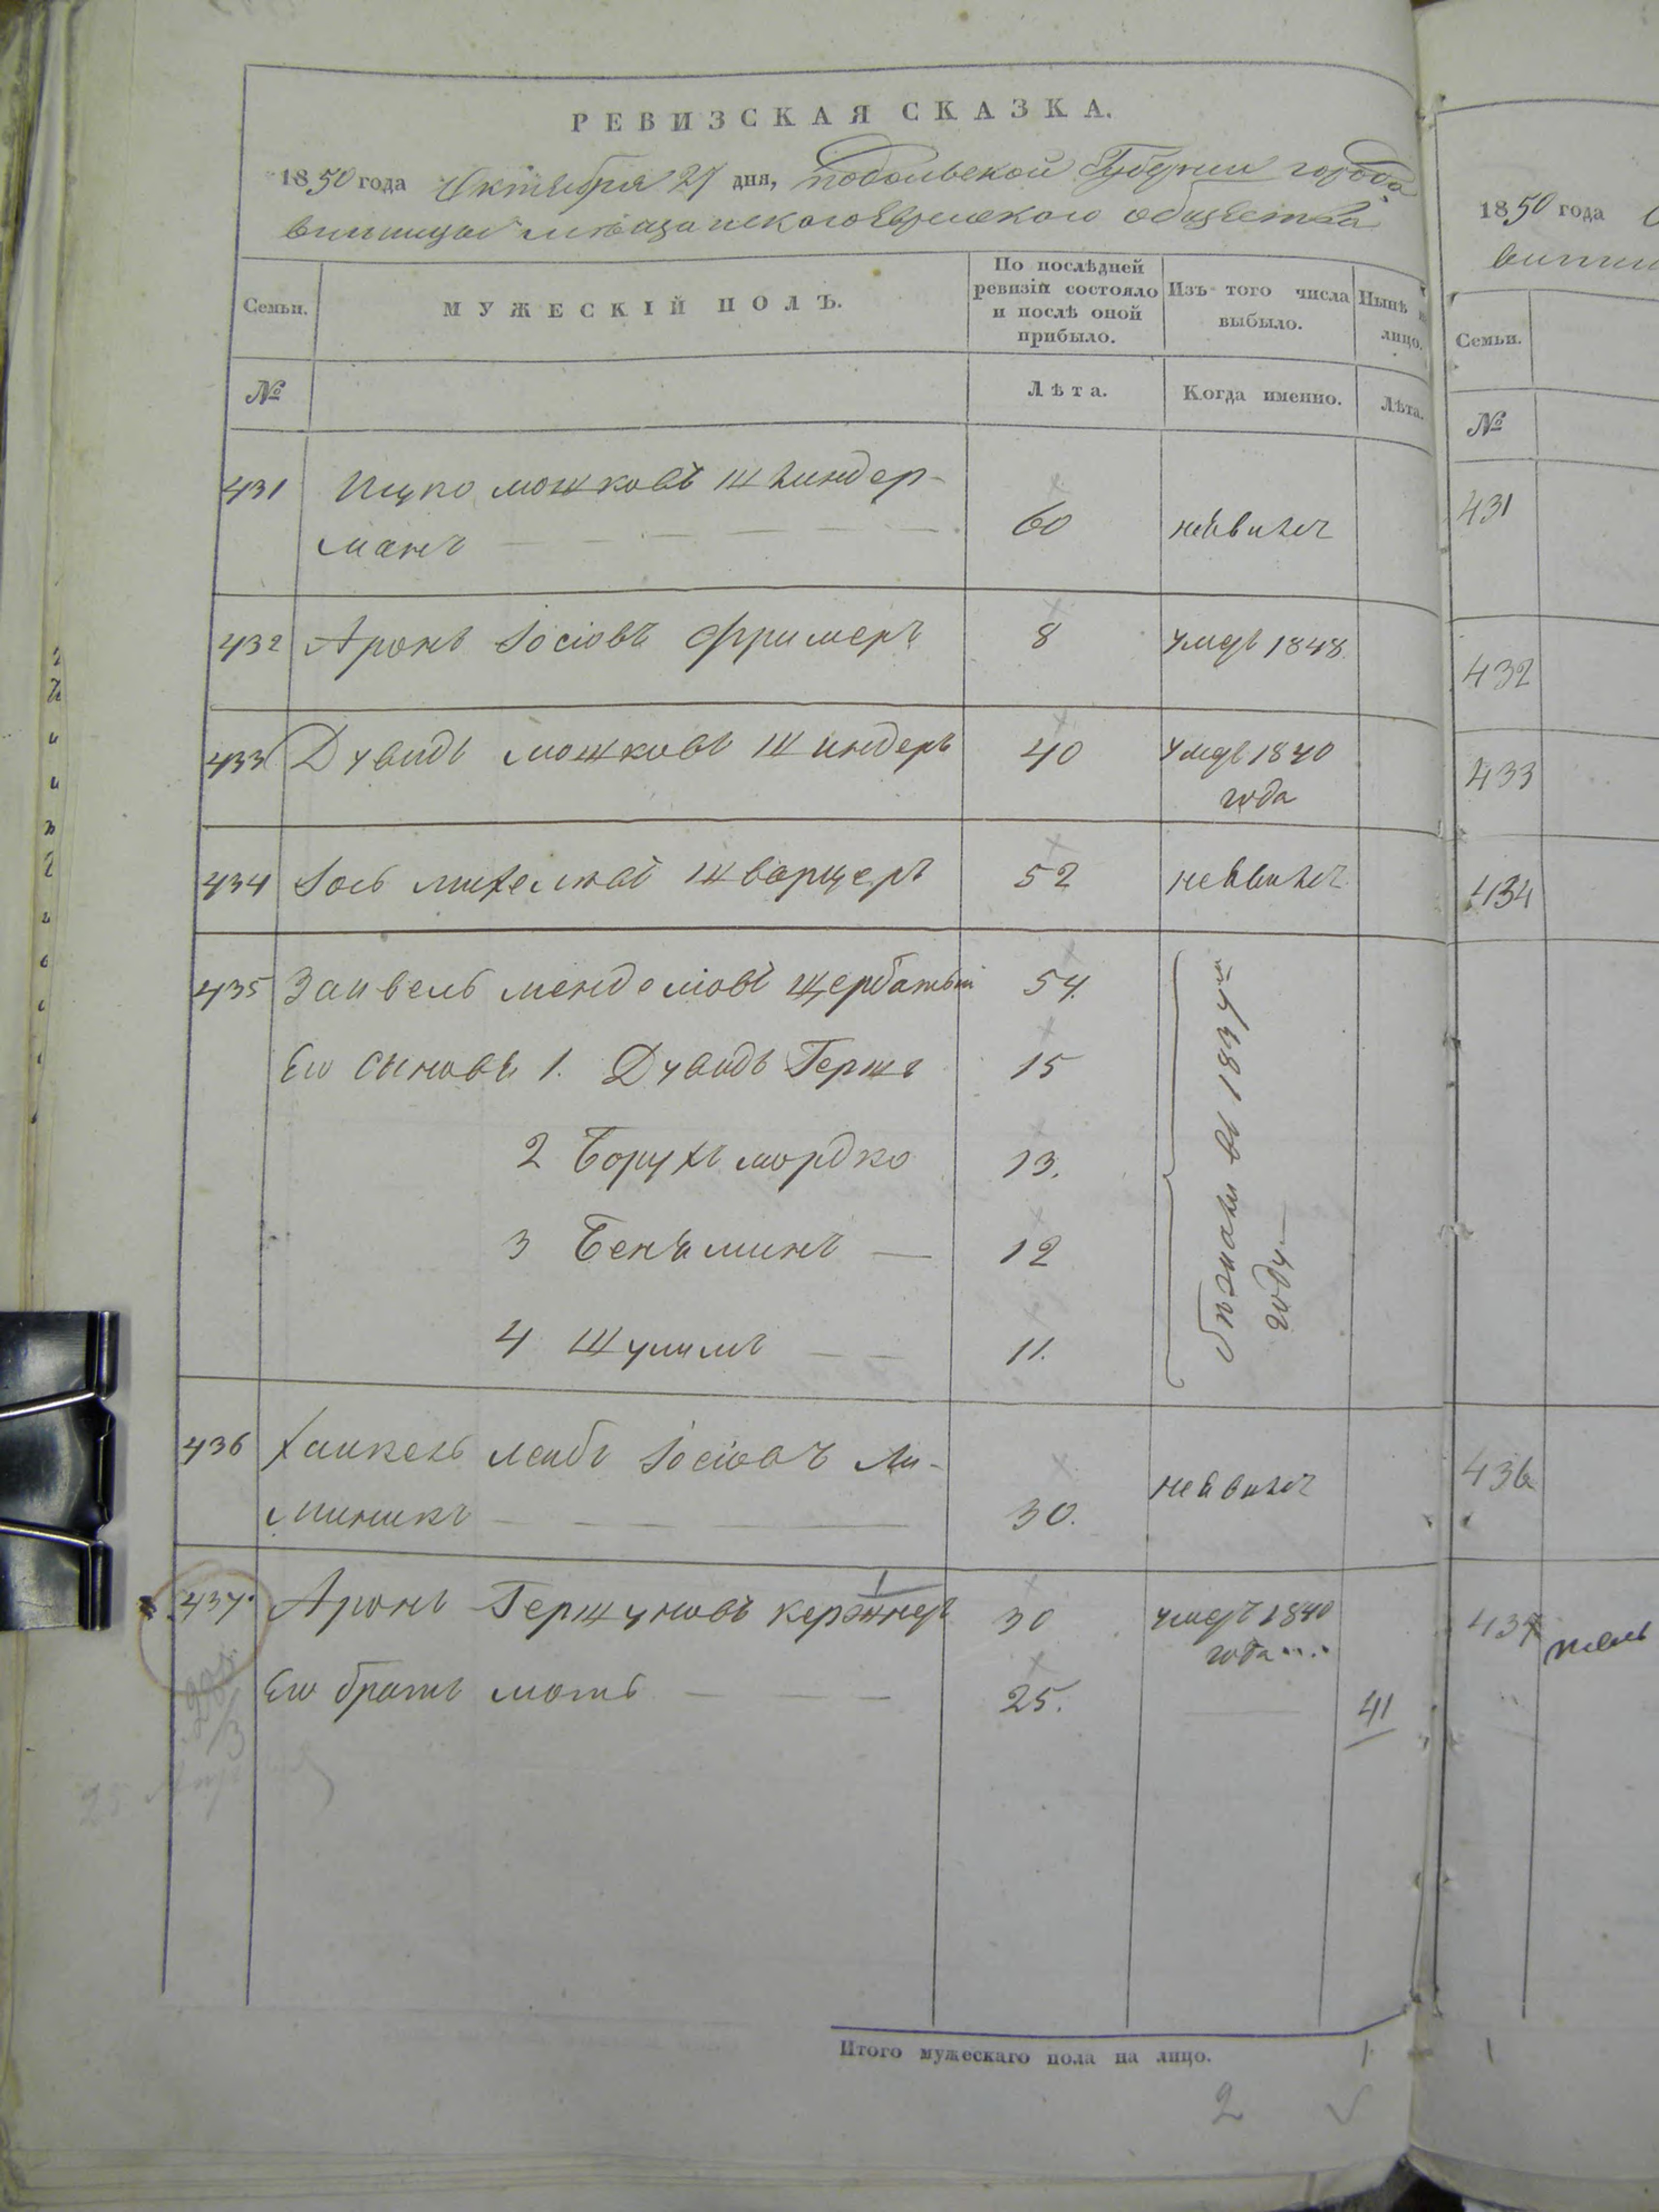 РЕВИЗСКАЯ СКАЗКА.
1850 года Октября 27 дня, подольской Губернии города
винницы мѣщанского Еврейского общества
Семьи. МУЖЕСКІЙ ПОЛЪ. По послѣдней ревизіи состояло и послѣ оной прибыло. Изъ того числа выбыло. Нынѣ на лицо.
№ Лѣта. Когда именно. Лѣта.
431 Ицко мошковъ
манъ 60 неявился
432 Аронъ Іосіовъ Фримеръ 8 умеръ 1848
433 Дувидъ мошковъ шиндеръ 40 умеръ 1840
года
434 Іось шварцеръ 52 неявился
435 Заивель менделіовъ щербатый 54.
Его сыновья 1. Дувидъ Гершъ 15
2 Борухъ мордко 13.
3 Беняминъ 12
4 Шулимъ 11.
въ 183
году
436 Хаикель леибъ Іосіовъ ли-
миникъ 30. неявился
437. Аронъ Гершуновъ 30 умеръ 1840
года
Его братъ моть 25. 41
Итого мужескаго пола на лицо. 1
2
1850 года
Семьи.
№
431
432
433
434
436
437
1